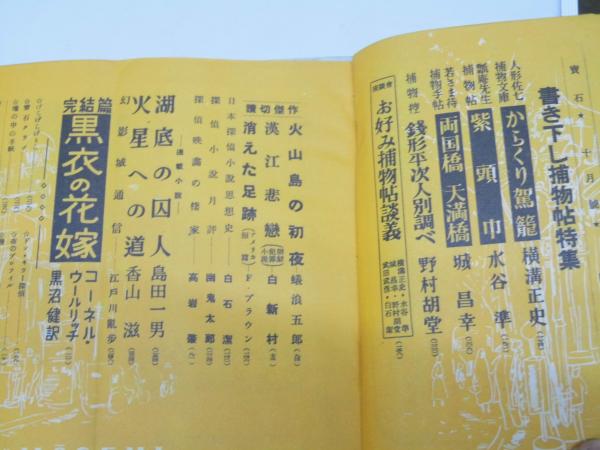 寳石★十月號★
書き下し捕物帖特集
人形佐七捕物文庫
からくり駕籠 横溝正史
瓢庵先生捕物帖
紫頭巾 水谷準
若さま侍捕物手帖
両国橋 天満橋 城昌幸
捕物控 銭形平次人別調べ 野村胡堂
座談會 お好み捕物帖談義
横溝正史・水谷準
城昌幸・野村胡堂
武田武彦・白石潔
讀切傑作
火山島の初夜 蜷浪五郎
漢江悲戀 白新村
消えた足跡 F・ブラウン
日本探偵小説思想史 白石潔
探偵小説月評 幽鬼太郎
探偵映畵の傍家 高岩肇
―連載小説―
湖底の囚人 島田一男
火星への道 香山滋
幻影城通信 江戸川亂歩
完結篇 黒衣の花嫁 コーネル・ウールリッチ
黒沼健訳